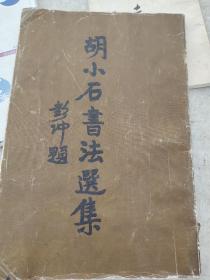 胡小石書法選集
彭冲題